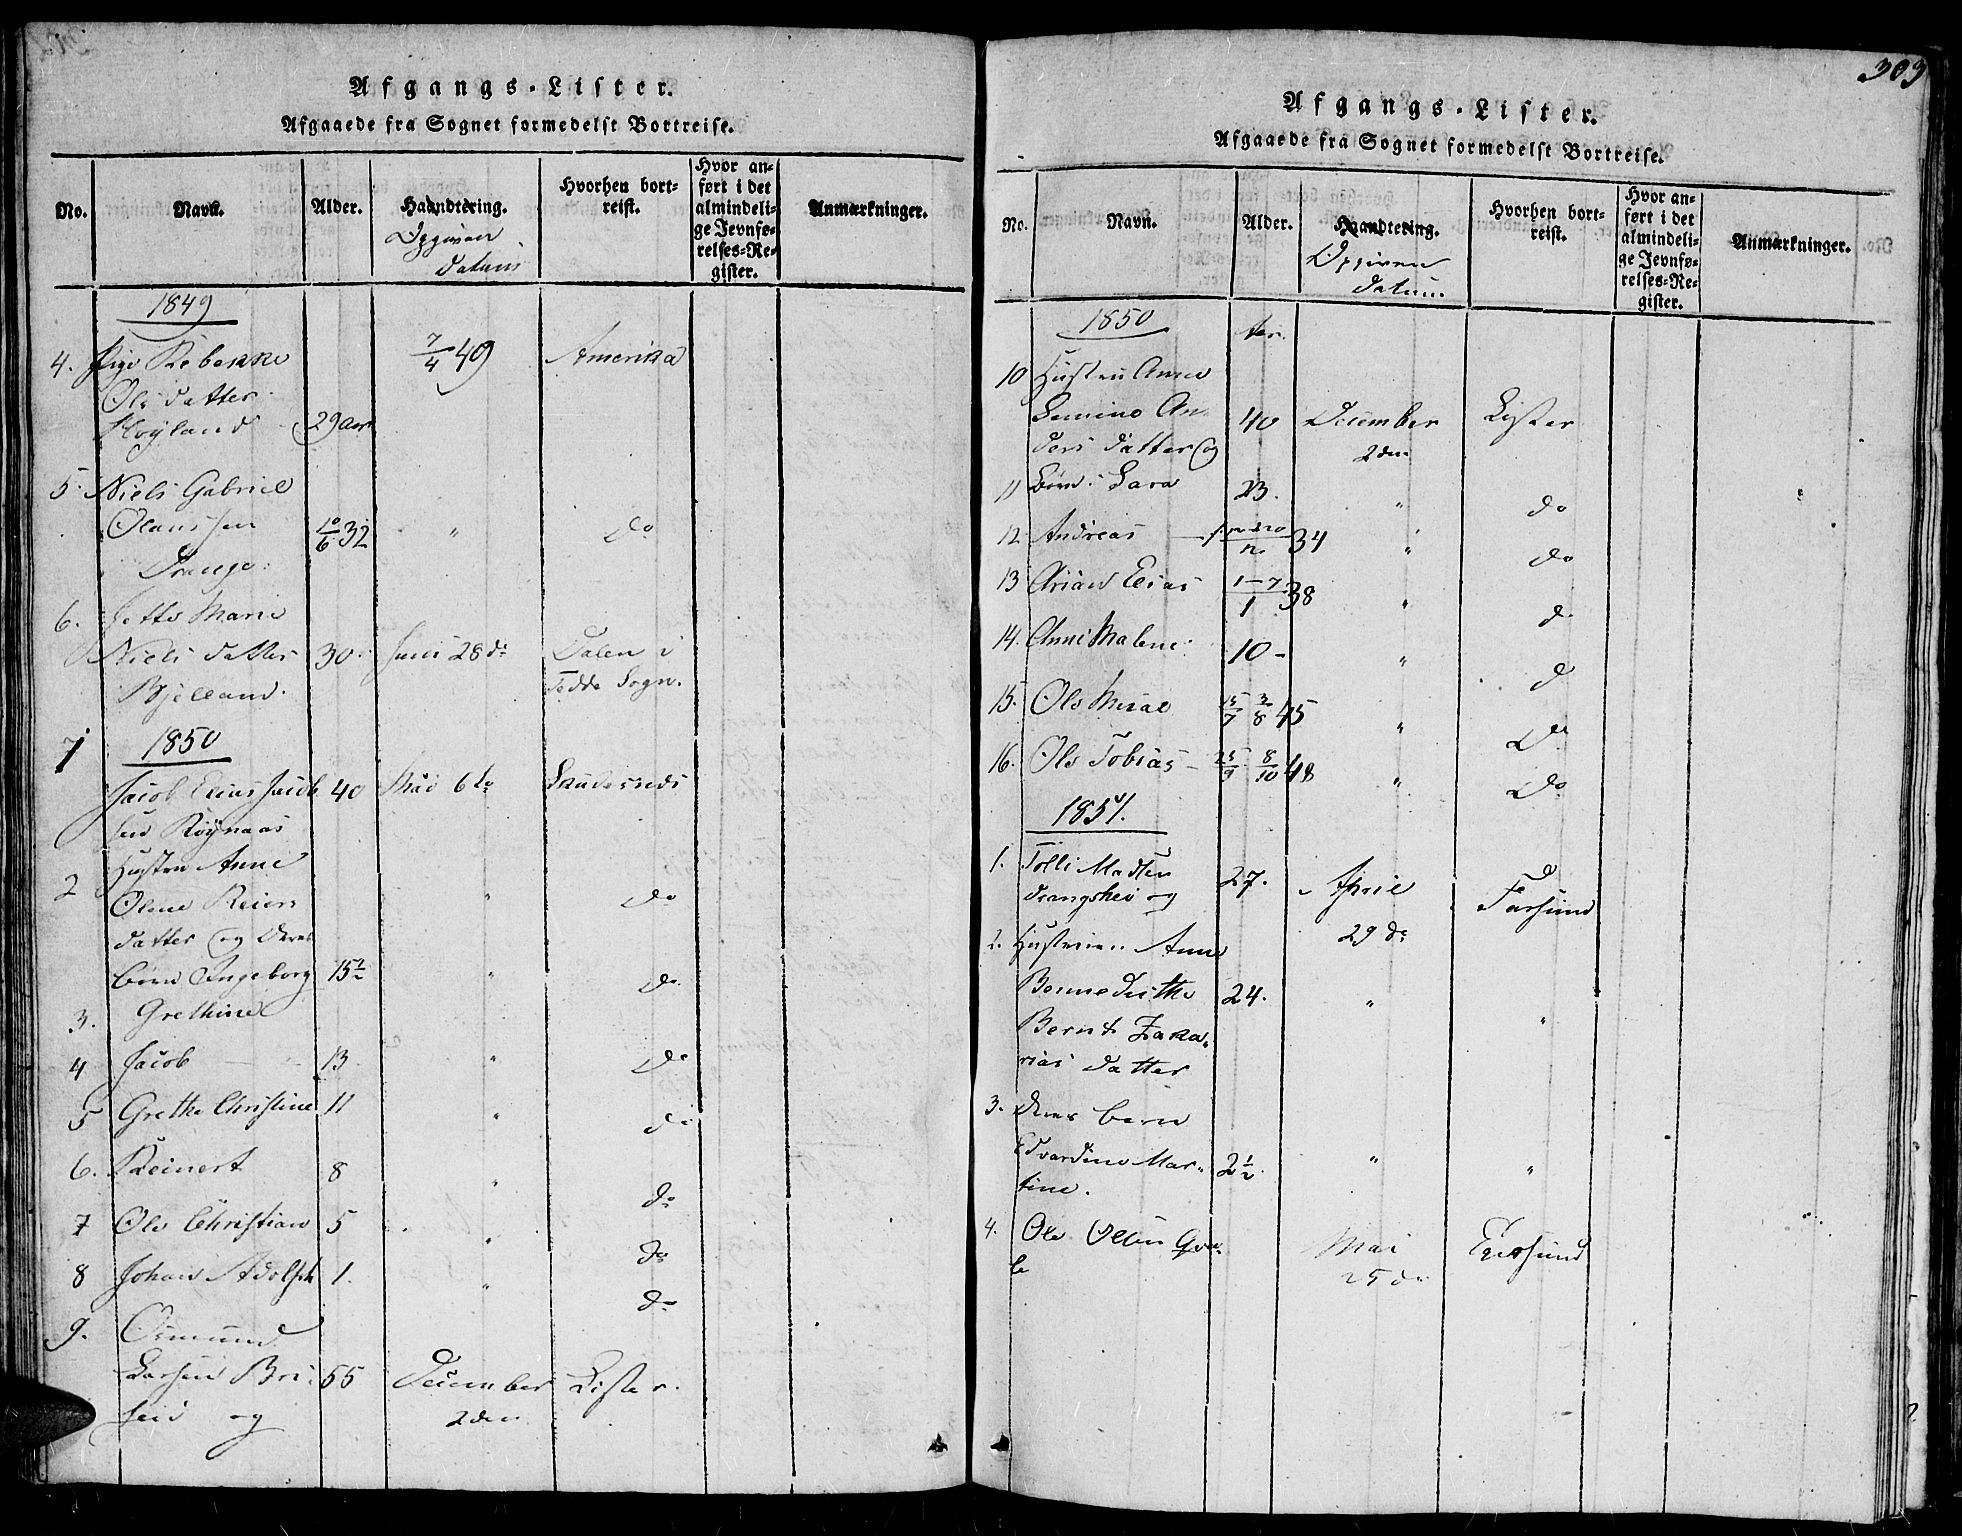 Afgangs-Lister.
Afgaaede fra Sognet formedelst Bortreise.
No. Navn. Alder. Haandtering. Hvorhen bortreist. Hvor anført i det almindelige Jevnførelses-Register. Anmærkninger.
Opgiven
Datum
1849
4. Pige Rebekke 7/4 49 Amerika
Ols datter
Høyland 29 aar
5. Niels Gabriel
Olaussen 10/6 32 " do
Drange.
6. Jette Marie
Niels datter 30. Juni 28de Dalen i
Bjelland. Fedde Sogn.
1850
1 Jacob Elias Jacob 40 Mai 6te
sen Røynaas
2 Hustru Anne
Olene Reiers " do
datter og deres
børn Ingeborg 15 1/2 " do
3. Grethine
4 Jacob 13 " do
5 Grethe Christine 11 " do
6. Reinert 8 " do
7 Ole Christian 5 " do
8 Johan Adolph 1. " do
9. Osmund
Larsen Bri- 55 December Lister.
seid og 2den
303
Afgangs-Lister.
Afgaaede fra Sognet formedelst Bortreise.
No. Navn. Alder. Haandtering. Hvorhen bortreist. Hvor anført i det almindelige Jevnførelses-Register. Anmærkninger.
Opgiven
Datum
1850
10 Hustru Anne
An- 40 December Lister
ders datter og 2den
11 Børn: Sara 23. " do
12 Andreas 34 " do
13 Elias 1-7/1 38 " d
14. Anne Malene 10 - " d
15. Ole Mikal 15/7 3/8 45 " do
16. Ole Tobias - 25/9 8/10 48 " do
1851.
1. Tolli Madsen 27. April Farsund
Drangshei og 29de
2. Hustruen Anne
Bennedicthe 24. " "
Bernt Zaka-
rias datter
3. deres barn
Edvardine Mar- 2 1/2. " "
tine.
4. Ole Olsen Mai Egersund
25de